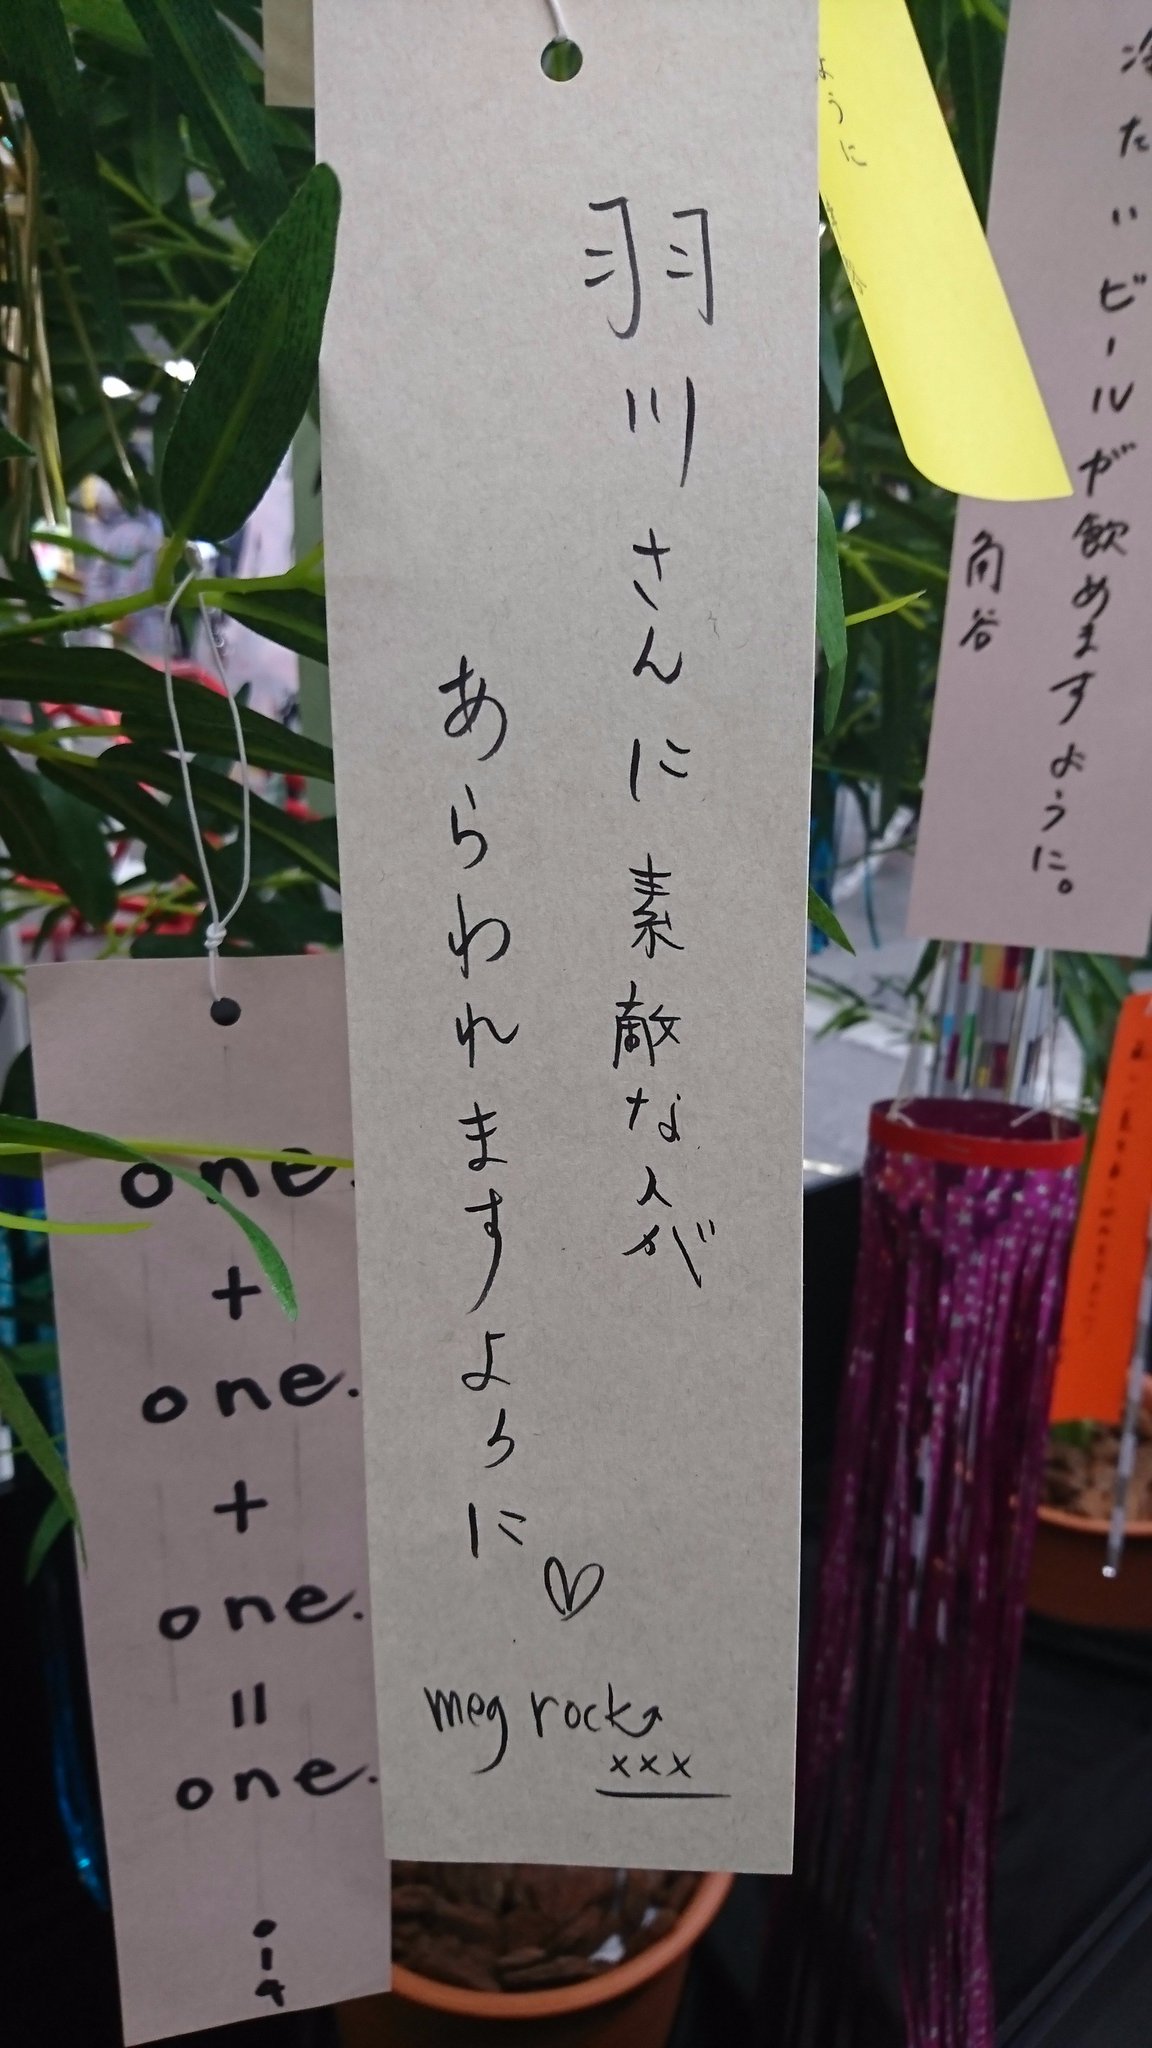 羽川さんに素敵な人が
あらわれますように♡
meg rock
xxx
冷たいビールが飲めますように。
角谷
ように
one.
+
one.
+
one.
=
one.